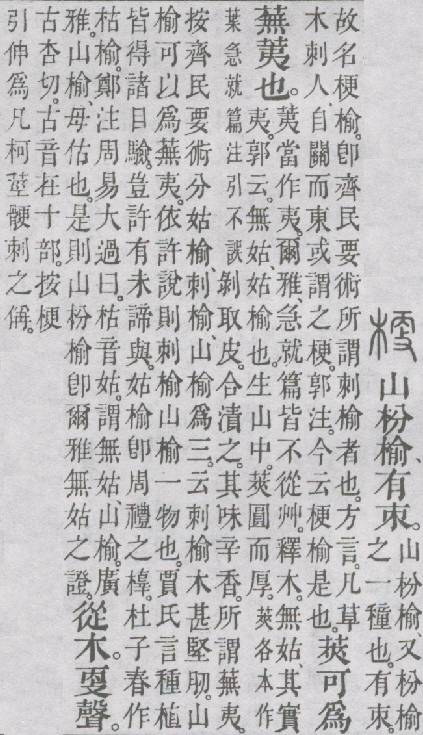 梗 山枌榆、有朿。
山枌榆、又枌榆
之一種也。有朿。
故名梗榆。卽齊民要術所謂刺榆者也。方言。凡草
木刺人、自關而東或謂之梗。郭注。今云梗榆是也。
莢可爲
蕪荑也。
荑當作夷。爾雅、急就篇皆不從艸。釋木。無姑、其實
夷。郭云。無姑、姑榆也。生山中。莢圓而厚。莢各本作
葉急就篇注引不誤剝取皮。合漬之。其味辛香。所謂蕪夷。
按齊民要術分姑榆、刺榆、山榆爲三。云刺榆木甚堅肕。山
榆可以爲蕪夷。依許說則刺榆山榆一物也。賈氏言種植
皆得諸目驗。豈許有未諦與。姑榆卽周禮之橭。杜子春作
枯榆。鄭注周易大過曰。枯音姑。謂無姑、山榆。廣
雅。山榆、毋估也。是則山枌榆卽爾雅無姑之證。
從木㪅聲。
古杏切。古音在十部。按梗
引伸爲凡柯莖鯁刺之偁。